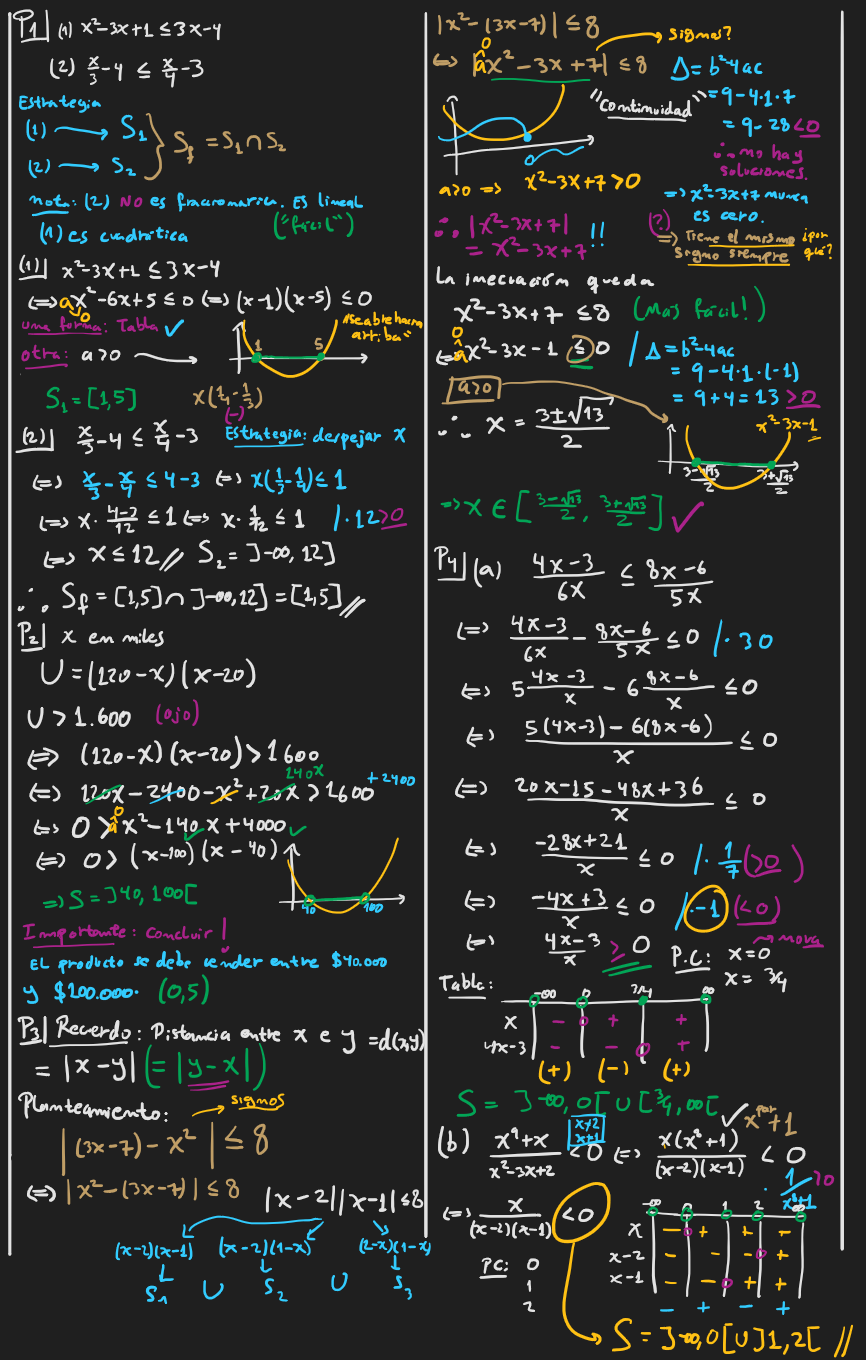 P1| (1) x²-3x+1 ≤ 3x-4
(2) x/3 - 4 ≤ x/4 - 3
Estrategia
(1) → S₁
(2) → S₂
} S_f = S₁ ∩ S₂
nota: (2) NO es fraccionaria. Es lineal
("fácil")
(1) es cuadrática
(1)| x²-3x+1 ≤ 3x-4
⟺ ax²-6x+5 ≤ 0 ⟺ (x-1)(x-5) ≤ 0
0
una forma: Tabla ✓
otra: a>0 →
1 5
"se abre hacia arriba"
S₁ = [1,5]
x(1/4 - 1/3)
(-)
(2)| x/3 - 4 ≤ x/4 - 3 Estrategia: despejar x
⟺ x/3 - x/4 ≤ 4-3 ⟺ x(1/3 - 1/4) ≤ 1
⟺ x · (4-3)/12 ≤ 1 ⟺ x · 1/12 ≤ 1 /·12 >0
⟺ x ≤ 12 // S₂ = ]-∞, 12]
∴ S_f = [1,5] ∩ ]-∞,12] = [1,5] //
P2| x en miles
U = (120-x)(x-20)
U > 1.600 (ojo)
⟺ (120-x)(x-20) > 1600
240x
⟺ 120x - 2400 - x² + 20x > 1600 +2400
0
⟺ 0 > a x² - 140x + 4000 ✓
⟺ 0 > (x-100)(x-40)
40 100
⟹ S = ]40, 100[
Importante: concluir!
EL producto se debe vender entre $40.000
y $100.000. (0,5)
P3| Recuerdo: Distancia entre x e y = d(x,y)
= |x-y| (= |y-x|)
Planteamiento: → signos
|(3x-7) - x²| ≤ 8
⟺ |x² - (3x-7)| ≤ 8
|x-2||x-1| ≤ 8
(x-2)(x-1) (x-2)(1-x) (2-x)(1-x)
S₁ ∪ S₂ ∪ S₃
|x² - (3x-7)| ≤ 8
signos?
0
⟺ |a x² - 3x + 7| ≤ 8
Δ = b²-4ac
= 9-4·1·7
= 9-28 <0
"continuidad"
∴ no hay
soluciones.
a>0 ⟹ x²-3x+7 > 0
⟹ x²-3x+7 nunca
es cero.
(?)
⟹ Tiene el mismo
signo siempre
¿por qué?
∴ |x²-3x+7|
= x²-3x+7 !!
La inecuación queda
x²-3x+7 ≤ 8 (Más fácil!)
0
⟺ a x²-3x-1 ≤ 0 / Δ = b²-4ac
= 9-4·1·(-1)
= 9+4 = 13 >0
a>0
∴ x = (3±√13)/2
x²-3x-1
(3-√13)/2 (3+√13)/2
⟹ x ∈ [(3-√13)/2, (3+√13)/2] ✓
P4| (a) (4x-3)/6x ≤ (8x-6)/5x
⟺ (4x-3)/6x - (8x-6)/5x ≤ 0 /·30
⟺ 5 (4x-3)/x - 6 (8x-6)/x ≤ 0
⟺ (5(4x-3) - 6(8x-6))/x ≤ 0
⟺ (20x-15-48x+36)/x ≤ 0
⟺ (-28x+21)/x ≤ 0 /· 1/7 (>0)
⟺ (-4x+3)/x ≤ 0 /·-1 (<0)
⟺ (4x-3)/x ≥ 0
P.C: x=0
x = 3/4
Tabla:
-∞ 0 3/4 ∞
x - 0 + +
4x-3 - - 0 +
(+) (-) (+)
S = ]-∞, 0[ ∪ [3/4, ∞[
x+2
x+1
✓ x^par+1
(b) (x⁹+x)/(x²-3x+2) < 0 ⟺ x(x⁸+1)/((x-2)(x-1)) < 0
· 1/(x⁸+1) >0
⟺ x/((x-2)(x-1)) < 0
PC: 0
1
2
-∞ 0 1 2 ∞
x - + + +
x-2 - - - +
x-1 - - + +
- + - +
S = ]-∞,0[ ∪ ]1,2[ //